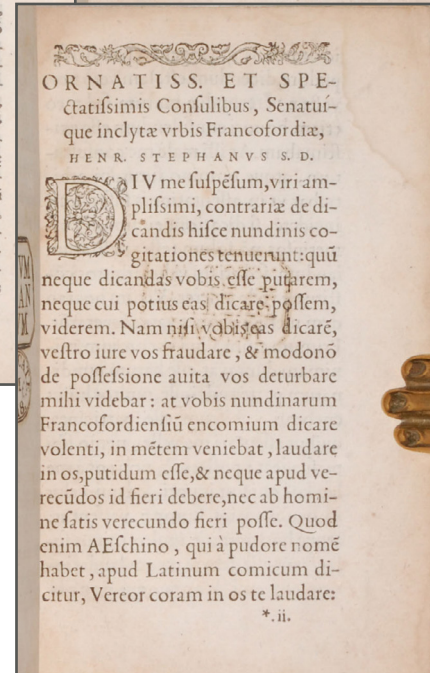 ORNATISS. ET SPE-
ctatiſsimis Conſulibus, Senatuí-
que inclytæ vrbis Francofordiæ,
HENR. STEPHANVS S. D.
DIV me ſuſpēſum, viri am-
pliſsimi, contrariæ de di-
candis hiſce nundinis co-
gitationes tenuerunt: quū
neque dicandas vobis eſſe putarem,
neque cui potius eas dicare poſſem,
viderem. Nam niſi vobis eas dicarē,
veſtro iure vos fraudare, & modonō
de poſſeſsione auita vos deturbare
mihi videbar: at vobis nundinarum
Francofordienſiū encomium dicare
volenti, in mētem veniebat, laudare
in os, putidum eſſe, & neque apud ve-
recūdos id fieri debere, nec ab homi-
ne ſatis verecundo fieri poſſe. Quod
enim AEſchino, qui à pudore nomē
habet, apud Latinum comicum di-
citur, Vereor coram in os te laudare:
*.ii.